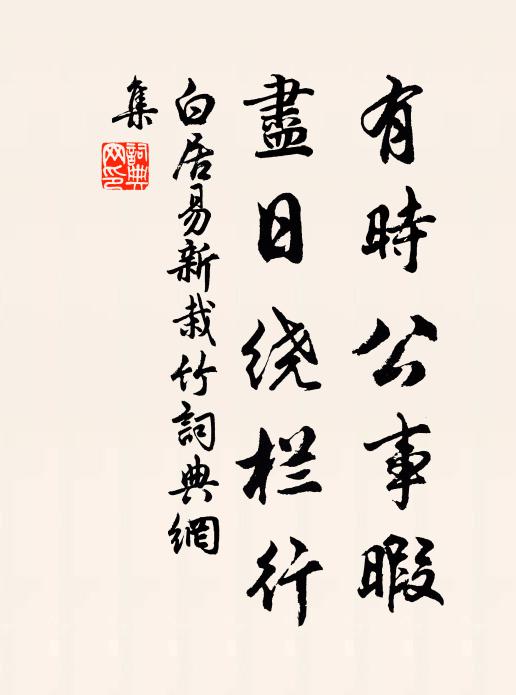 有時公事暇
盡日绕栏行
白居易新栽竹詞典網
集
詞典网印